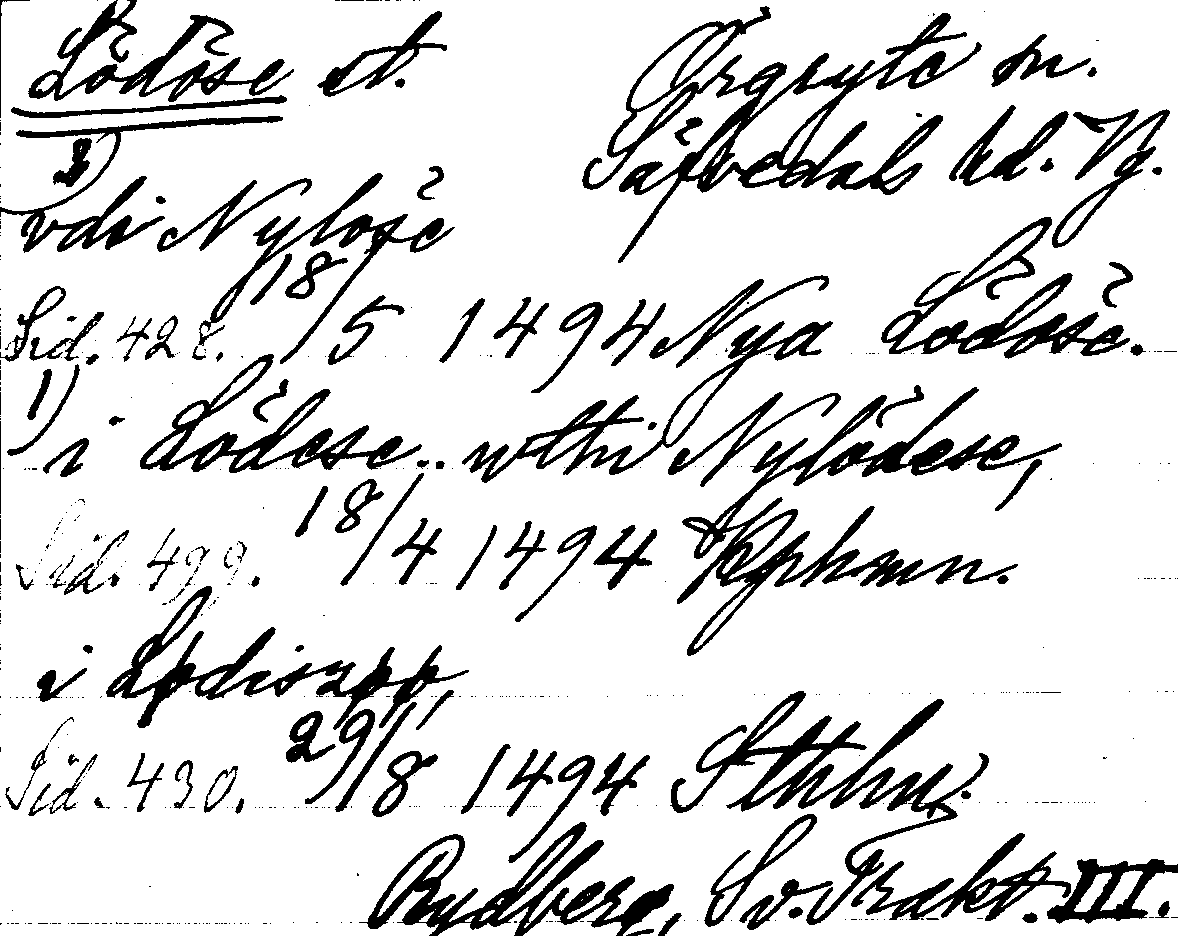 Lödöse st. Örgryte sn.
Säfvedals hd. Vg.
3)
vdi Nylöse
Sid. 428. 18/5 1494 Nya Lödöse.
1)
i Lödese.. wthi Nylödese,
Sid. 499. 18/4 1494 Kphmn.
i Lødiszøø,
Sid. 430. 29/8 1494 Sthlm.
Rydberg, Sv. Trakt. III.